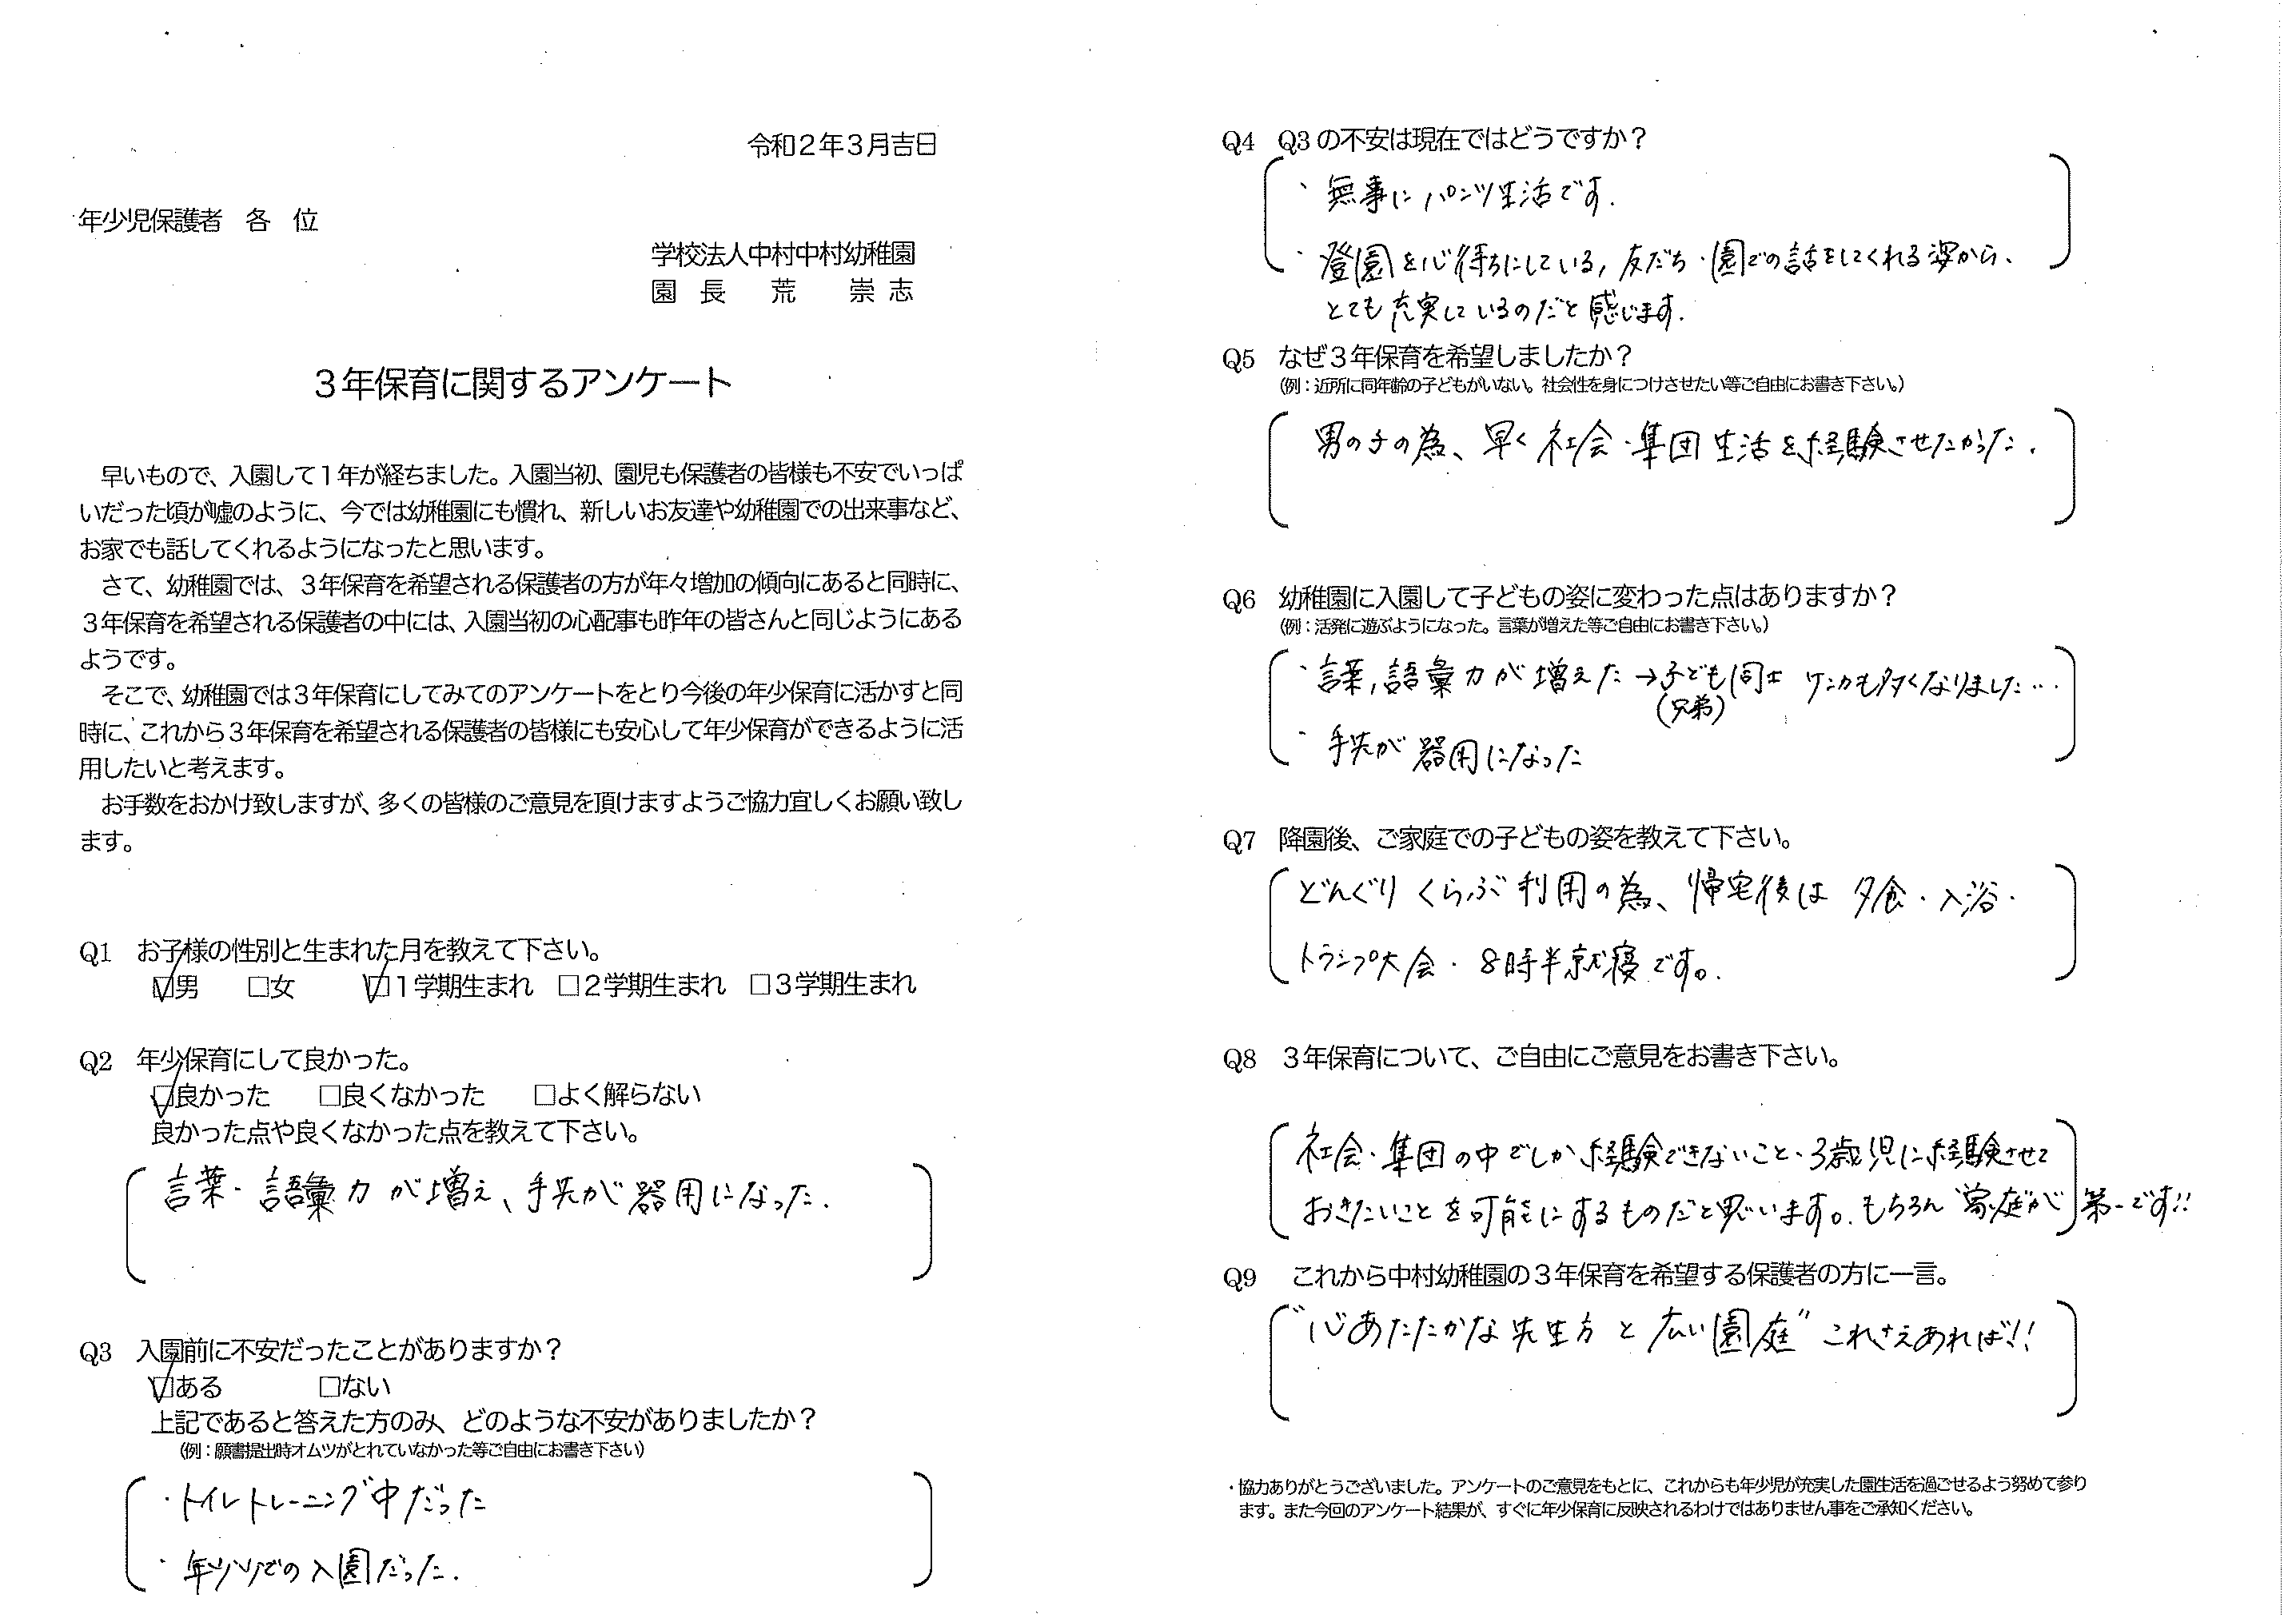 令和2年3月吉日
年少児保護者　各　位
学校法人中村中村幼稚園
園　長　　荒　　崇　志
3年保育に関するアンケート
早いもので、入園して1年が経ちました。入園当初、園児も保護者の皆様も不安でいっぱ
いだった頃が嘘のように、今では幼稚園にも慣れ、新しいお友達や幼稚園での出来事など、
お家でも話してくれるようになったと思います。
さて、幼稚園では、3年保育を希望される保護者の方が年々増加の傾向にあると同時に、
3年保育を希望される保護者の中には、入園当初の心配事も昨年の皆さんと同じようにある
ようです。
そこで、幼稚園では3年保育にしてみてのアンケートをとり今後の年少保育に活かすと同
時に、これから3年保育を希望される保護者の皆様にも安心して年少保育ができるように活
用したいと考えます。
お手数をおかけ致しますが、多くの皆様のご意見を頂けますようご協力宜しくお願い致し
ます。
Q1　お子様の性別と生まれた月を教えて下さい。
☑男　　□女　　　☑1学期生まれ　□2学期生まれ　□3学期生まれ
Q2　年少保育にして良かった。
☑良かった　　□良くなかった　　□よく解らない
良かった点や良くなかった点を教えて下さい。
言葉・語彙力が増え、手先が器用になった.
Q3　入園前に不安だったことがありますか？
☑ある　　　　□ない
上記であると答えた方のみ、どのような不安がありましたか？
(例：願書提出時オムツがとれていなかった等ご自由にお書き下さい)
・トイレトレーニング中だった
・年少での入園だった.
Q4　Q3の不安は現在ではどうですか？
・無事にパンツ生活です.
・登園を心待ちにしている, 友だち・園での話をしてくれる姿から、
とても充実しているのだと感じます.
Q5　なぜ3年保育を希望しましたか？
(例：近所に同年齢の子どもがいない。社会性を身につけさせたい等ご自由にお書き下さい。)
男の子の為、早く社会・集団生活を経験させたかった.
Q6　幼稚園に入園して子どもの姿に変わった点はありますか？
(例：活発に遊ぶようになった。言葉が増えた等ご自由にお書き下さい。)
・言葉,語彙力が増えた→子ども同士 ケンカも多くなりました…
(兄弟)
・手先が器用になった
Q7　降園後、ご家庭での子どもの姿を教えて下さい。
どんぐりくらぶ利用の為、帰宅後は夕食・入浴・
トランプ大会・8時半就寝です。
Q8　3年保育について、ご自由にご意見をお書き下さい。
社会・集団の中でしか経験できないこと・3歳児に経験させて
おきたいことを可能にするものだと思います。もちろん家庭が第一です!!
Q9　これから中村幼稚園の3年保育を希望する保護者の方に一言。
“心あたたかな先生方と広い園庭” これさえあれば!!
・協力ありがとうございました。アンケートのご意見をもとに、これからも年少児が充実した園生活を過ごせるよう努めて参り
ます。また今回のアンケート結果が、すぐに年少保育に反映されるわけではありません事をご承知ください。